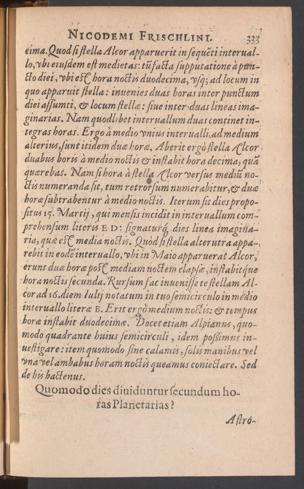 NICODEMI FRISCHLINI. 333
eima. Quod si stella Alcor apparuerit in sequẽti interual-
lo, vbi eiusdem est medietas: tũ facta supputatione à pun-
cto diei, vbi est hora noctis duodecima, vsq; ad locum in
quo apparuit stella: inuenies duas horas inter punctum
diei assumti, & locum stellæ: siue inter duas lineas ima-
ginarias. Nam quodlibet interuallum duas continet in-
tegras horas. Ergo à medio vnius interualli, ad medium
alterius, sunt itidem duæ horæ. Aberit ergò stella Alcor
duabus horis à medio noctis & instabit hora decima, quã
quærebas. Nam si hora à stella Alcor versus mediũ no-
ctis numeranda sit, tum retrorsum numerabitur, & duæ
horæ subtrahentur à medio noctis. Iterum sit dies propo-
situs 15. Martij, qui mensis incidit in interuallum com-
prehensum literis E D: signaturq́; dies linea imagina-
ria, quæ est media noctis. Quod si stella alter vtra appa-
rebit in eodẽ interuallo, vbi in Maio apparuerat Alcor,
erunt duæ horæ post mediam noctem elapsæ, instabitque
hora noctis secunda. Rursum fac inuenisse te stellam Al-
cor ad 16. diem Iulij notatum in tuo semicirculo in medio
interuallo literæ B. Erit ergò medium noctis: & tempus
horæ instabit duodecimæ. Docet etiam Alpianus, quo-
modo quadrante huius semicirculi, idem possimus in-
uestigare: item quomodo sine calamis, solis manibus vel
vna vel ambabus horam noctis queamus coniectare. Sed
de his hactenus.
Quomodo dies diuiduntur secundum ho-
ras Planetarias?
Astro-